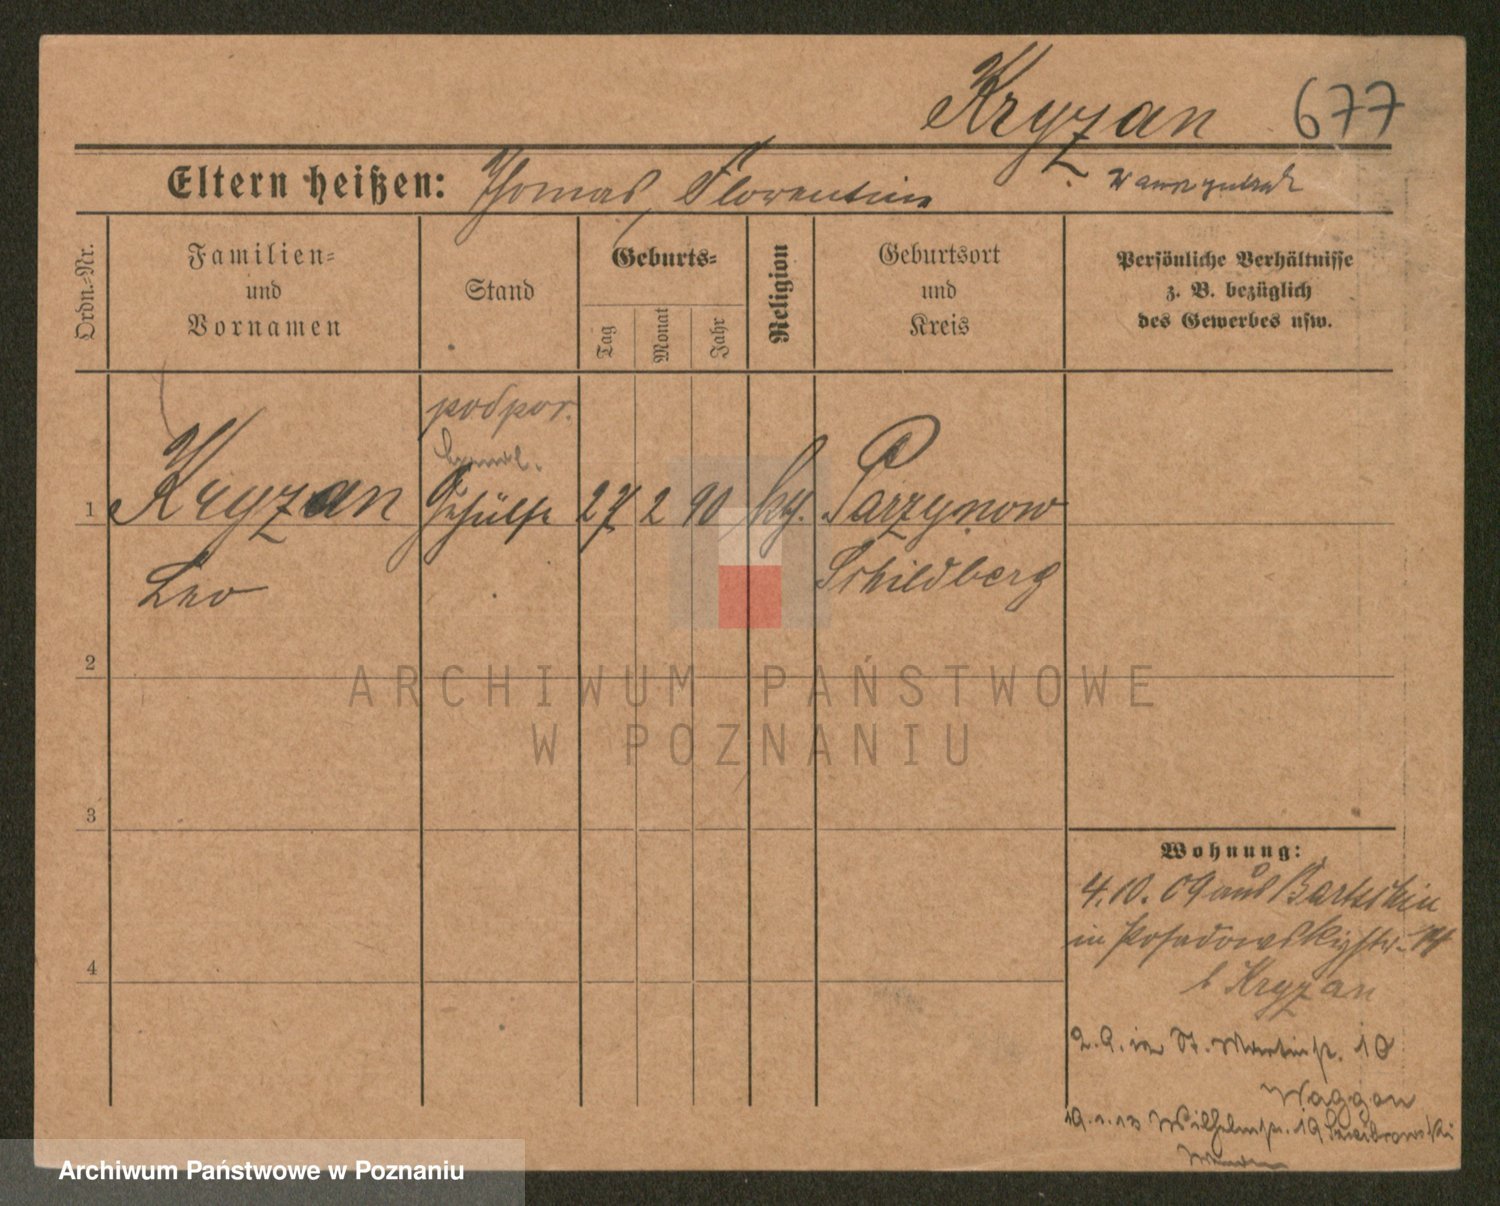 Kryzan 677
Eltern heißen: Thomas, Florentine
Ordn.-Nr.
Familien=
und
Vornamen
Stand
Geburts=
Tag
Monat
Jahr
Religion
Geburtsort
und
Kreis
Persönliche Verhältnisse
z. B. bezüglich
des Gewerbes usw.
podpor.
1 Kryzan Gehülfe 27 2 90 kth. Parzynow
Leo Schildberg
2
3
4
Wohnung:
4.10.09 aus
in Posadowskystr. 14
b Kryzan
in St. Martinstr. 10
Waggon
Wilhelmstr. 19
ARCHIWUM PAŃSTWOWE
W POZNANIU
Archiwum Państwowe w Poznaniu